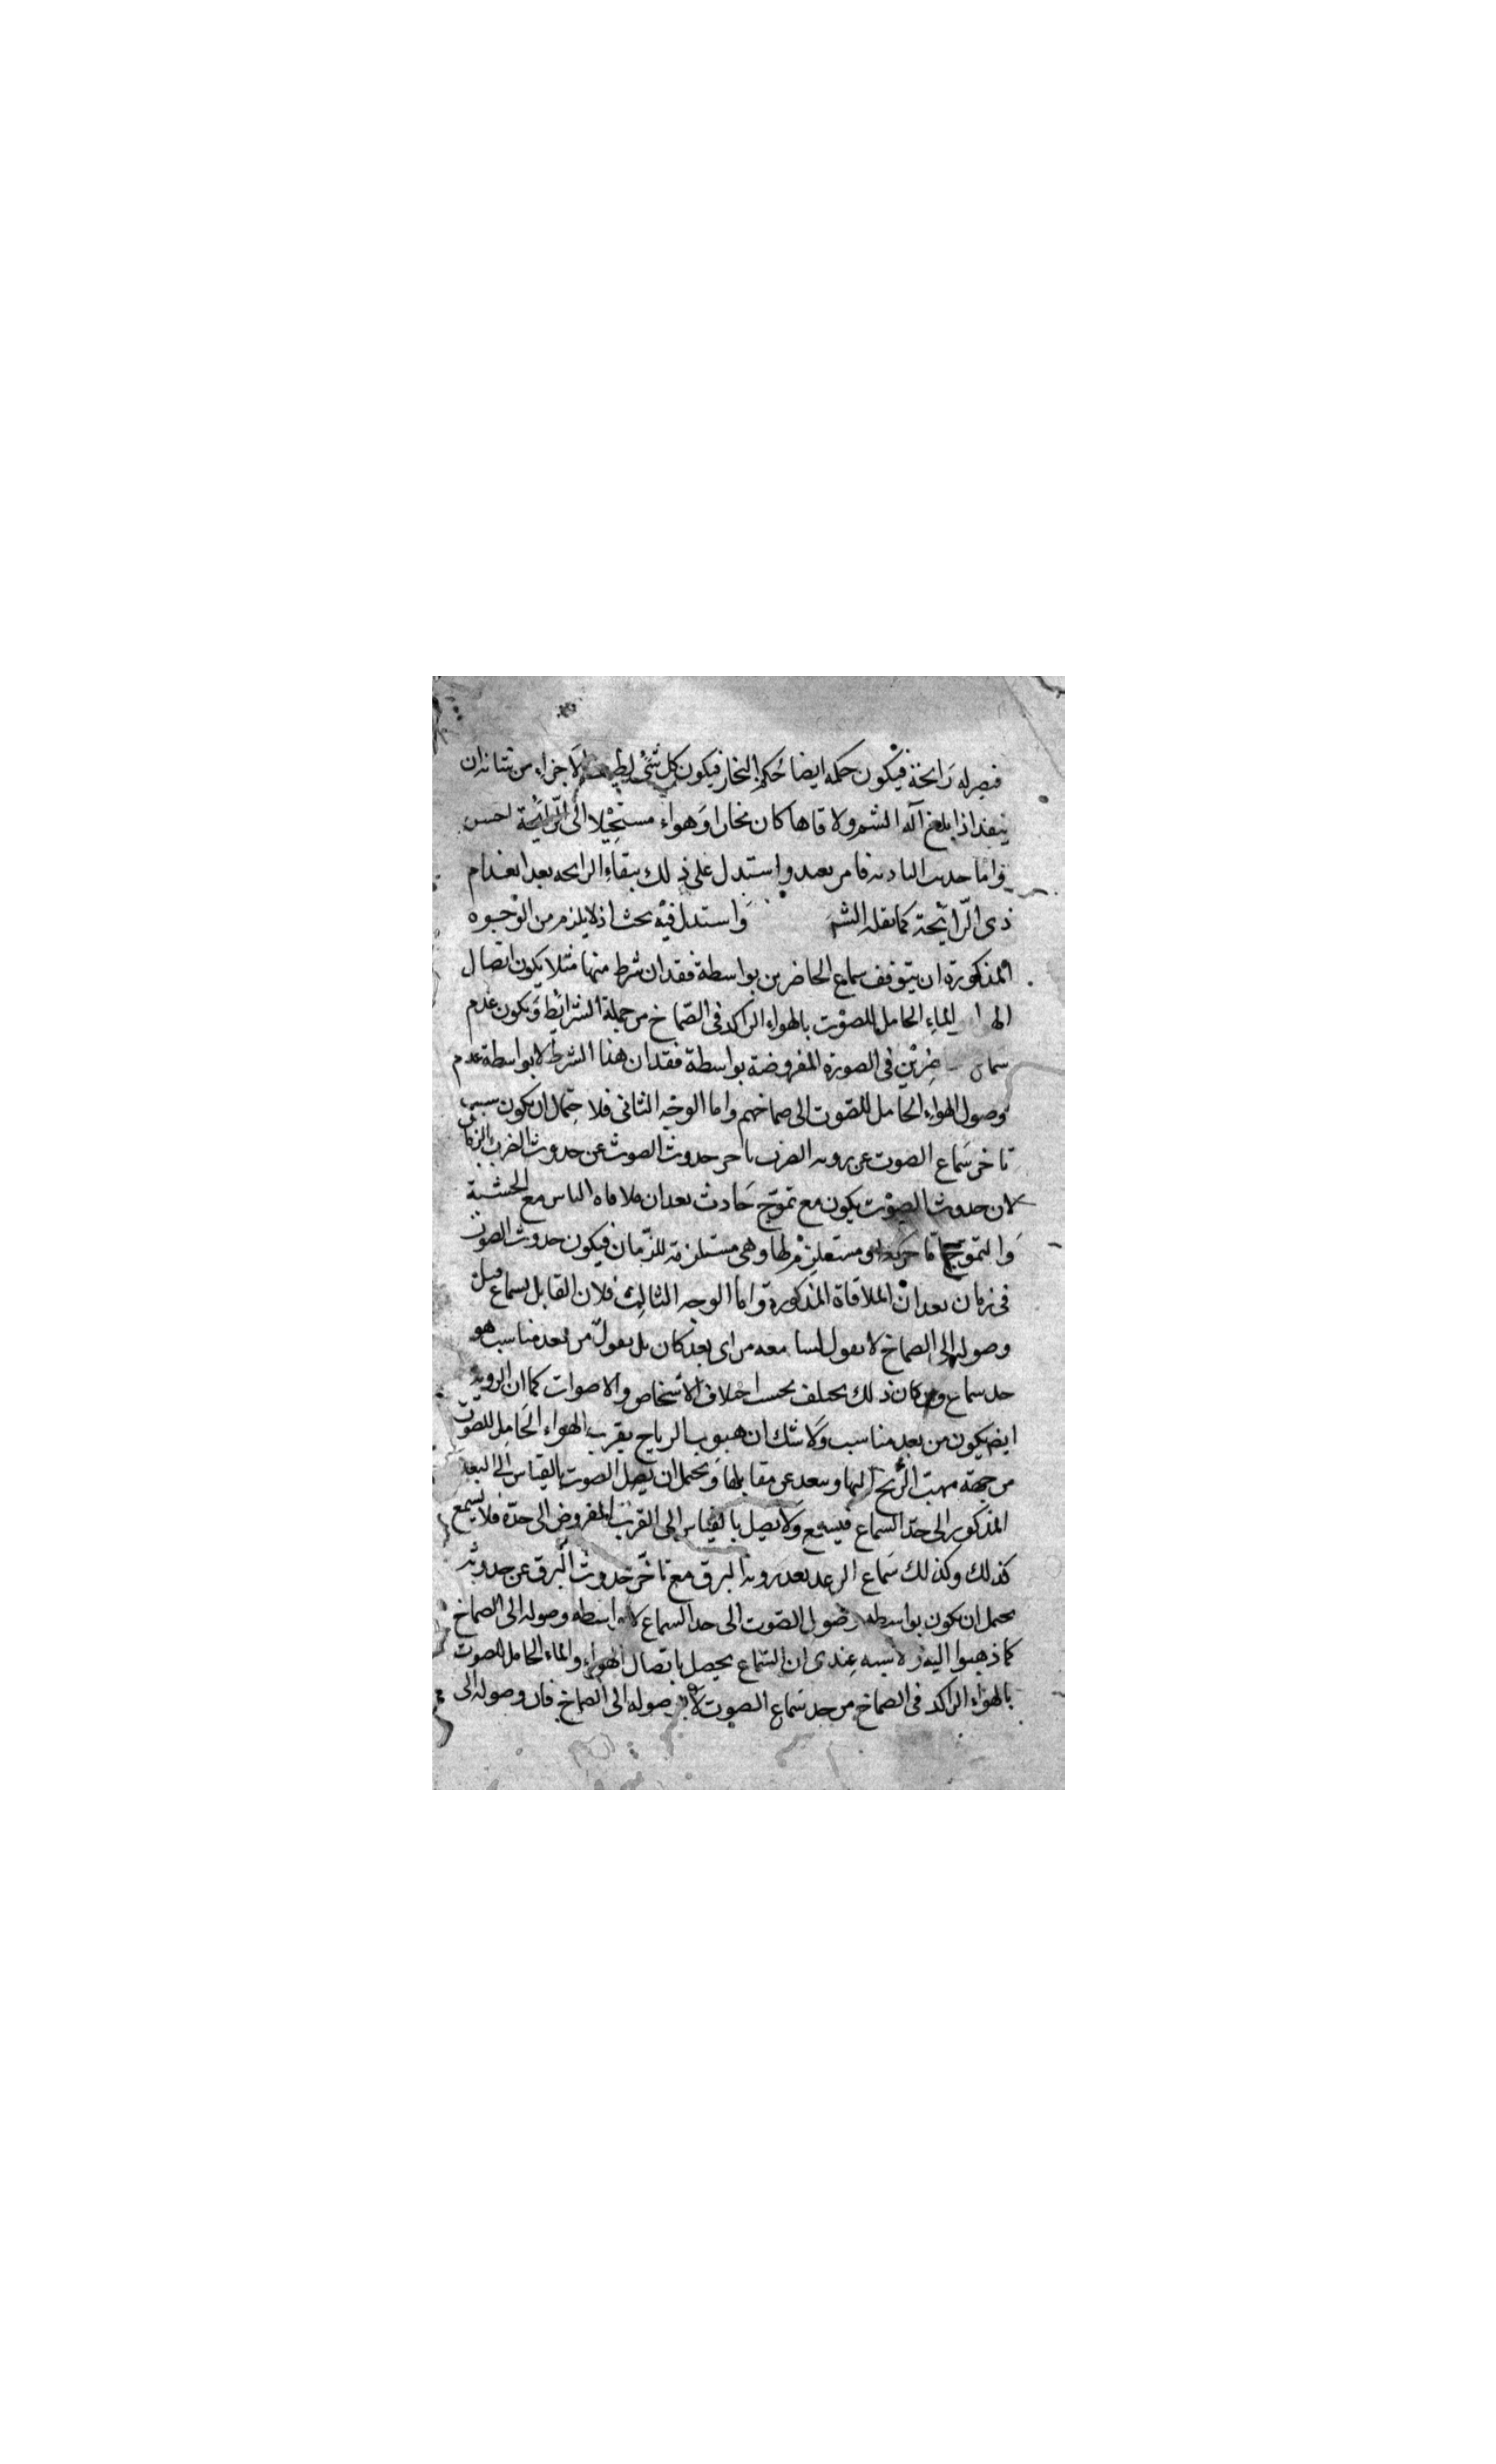 فيصير له رايحة فيكون حكمه ايضا حكم البخار فيكون كل شئ لطيف الاجزاء من شانه ان
ينفذ اذا بلغ آلة الشم ولاقاها كان بخارا وهواء مستحيلا الى الرائحة احس
واما حديث التادية فامر بعيد واستدل على ذلك ببقاء الرايحه بعد انعدام
ذى الرائحة كما نقله الشم واستدل فيه بحث اذ لا يلزم من الوجوه
المذكورة ان يتوقف سماع الحاضرين بواسطة فقدان شرط منها مثلا يكون اتصال
الماء الحامل للصوت بالهواء الراكد فى الصماخ من جملة الشرائط ويكون عدم
فى الصورة المفروضة بواسطة فقدان هذا الشرط لا بواسطة عدم
وصول الهواء الحامل للصوت الى صماخهم واما الوجه الثانى فلاحتمال ان يكون سبب
تاخر سماع الصوت عن روية الضرب تاخر حدوث الصوت عن حدوث الضرب بالزمان
لان حدوث الصوت يكون مع تموج حادث بعد ان ملاقاه الفاس مع الخشبة
والتموج اما حركة او مستلزم لها وهى مستلزمة للزمان فيكون حدوث الصوت
فى زمان بعد ان الملاقاة المذكورة واما الوجه الثالث فلان القايل بسماع قبل
وصوله الى الصماخ لا يقول بسامعه من اى بعد كان بل يقول من بعد مناسب هو
حد سماع وان كان ذلك يختلف بحسب اختلاف الاشخاص والاصوات كما ان الروية
ايضا يكون من بعد مناسب ولا شك ان هبوب الرياح يقرب الهواء الحامل للصوت
من جهة مهبت الريح اليها ويبعد عن مقابلها ويحتمل ان يصل الصوت بالقياس الى البعد
المذكور الى حد السماع فيسمع ولا يصل بالقياس الى القرب المفروض الى حده فلا يسمع
كذلك وكذلك سماع الرعد بعد روية البرق مع تاخر حدوث البرق عن حدوثه
يحتمل ان يكون بواسطه وصول الصوت الى حد السماع لا بواسطه وصوله الى الصماخ
كما ذهبوا اليه ولا شبهه عندى ان السماع يحصل باتصال الهواء والماء الحامل للصوت
بالهواء الراكد فى الصماخ من حد سماع الصوت لا وصوله الى الصماخ فان وصوله الى